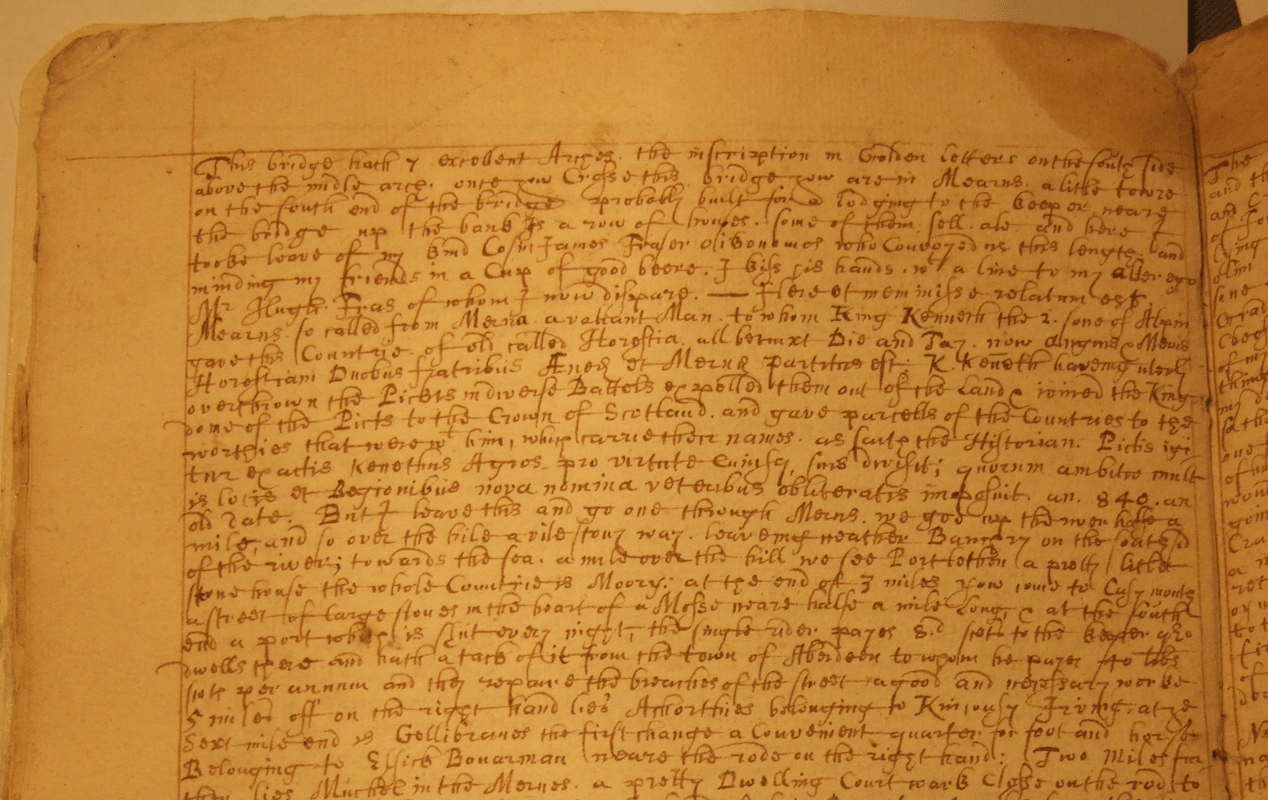 This bridge hath 7 excellent Arches. the inscription in Golden Letters on the south side
above the midle arch. once yow Crosse this bridge yow are in Mearns. a litle towre
on the south end of the bridge probably built for a lodging to the keeper neare
the bridge up the bank is a row of houses. some of them sell ale and here I
tooke leave of my kind Cosin James Fraser who Convoyed us this length and
minding my friends in a Cup of good beere. I kiss his hands. wt a line to my alter ego
Mr Hugh Fras of whom I now dispare. — Flere et meminisse relatum est.
Mearns so called from Merna a valiant Man. to whom King Kenneth the 2. sone of Alpin
gave this Countrie. of old called Horestia. all betwixt Die and Tay. now Angus & Merns
Horestiam Duobus fratribus Æneæ et Mernæ partitus est. K. Keneth haveing
overthrown the Pickts in diverse Battels expelled them out of the Land & joined the King
dome of the Picts to the Crown of Scotland. and gave parcells of the Countries to the
worthies that were wt him, which carrie their names. as saith the Historian. Pictis igi
tur exactis Kenethus Agros pro virtute cuiusq, suis divisit; quorum ambitio mult
is locis et Regionibus nova nomina veteribus obliteratis imposuit. an. 840. an
old date. But I leave this and go one through Merns. we goe up the halfe a
mile, and so over the hile a vile stony way. leaveing neather Banchry on the south sid
of the river; towards the sea. a mile over the hill we see Portlethen a pretty little
stone house the whole Countrie is Moory; at the end of 3 miles yow come to Causy mouth
a street of large stones in the heart of a Mosse neare halfe a mile Long & at the south
end a port which is shut every night, the single rider payes 8.d scots to the keeper who
dwells there and hath a tack of it from the town of Aberdeen to whom he payes libs
scots per annum and they repaire the breaches of the street a good and necessary worke
5 miles off on the right hand lies belonging to Irving. at ye
sext mile end is Gellibrands the first change a Convenient quarter for foot and horse
Belonging to Elsick Bonarman neare the rode on the right hand; Two miles fur
ther lies Muchel in the Mernes. a pretty Dwelling Courtwark Closse on the rode to